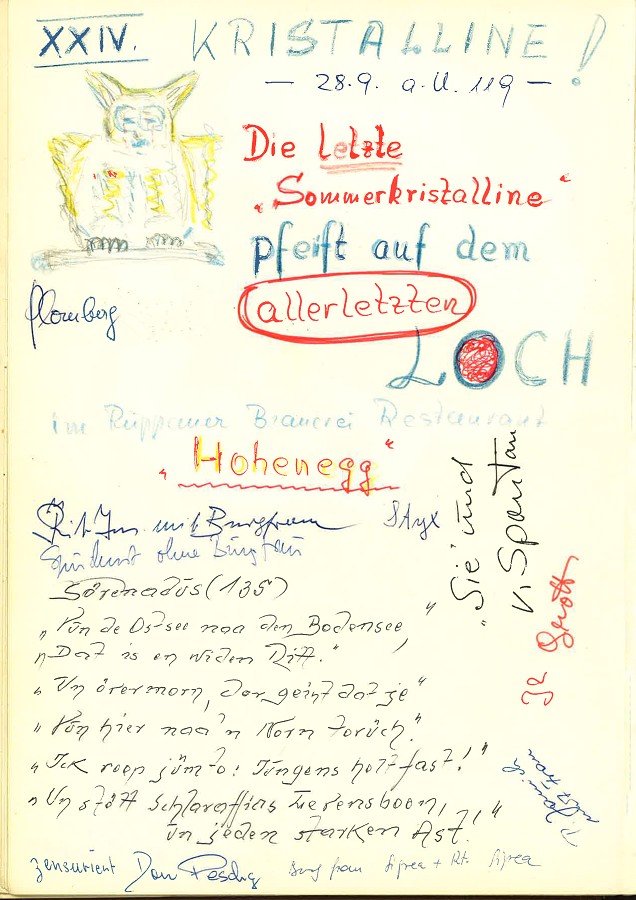 XXIV. KRISTALLINE!
— 28.9. a.U. 119 —
Die letzte
„Sommerkristalline“
pfeift auf dem
allerletzten
LOCH
Plomberg
im Ruppaner Brauerei Restaurant
„Hohenegg“
mit Burgfrau Styx
ohne Burgfrau
(135)
„Vun de Ostsee naa den Bodensee,“
„Dat is en widen Ritt.“
„Un övermorn, dor geiht dat je“
„Vun hier naa'n Norn torüch.“
„Ick roop jüm to: Jungens holt fast!“
„Un stött Schlaraffias Levensboom,
un jeden starken Ast!“
„Sie“ und
v. Spontan
zensuriert Don Peschg
Burgfrau + Rt.